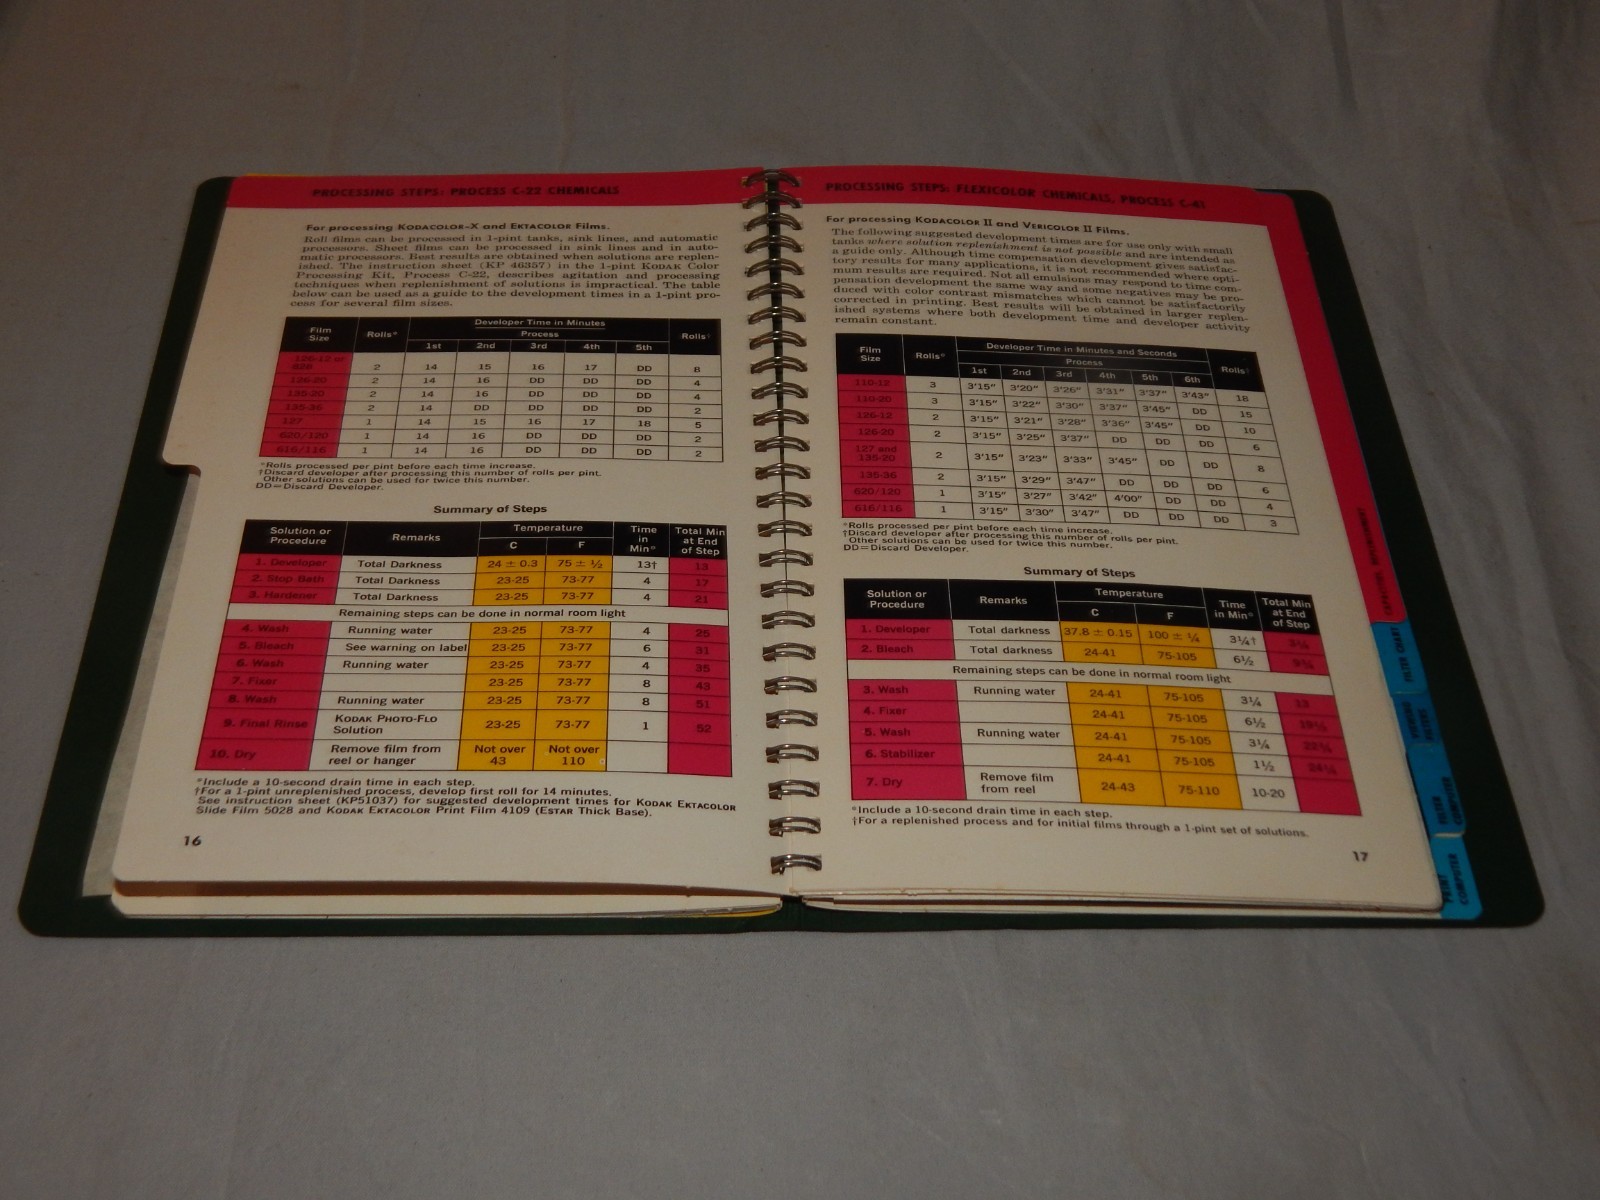 PROCESSING STEPS: PROCESS C-22 CHEMICALS
For processing KODACOLOR-X and EKTACOLOR Films.
Roll films can be processed in 1-pint tanks, sink lines, and automatic
processors. Sheet films can be processed in sink lines and in auto-
matic processors. Best results are obtained when solutions are replen-
ished. The instruction sheet (KP 46357) in the 1-pint KODAK Color
Processing Kit, Process C-22, describes agitation and processing
techniques when replenishment of solutions is impractical. The table
below can be used as a guide to the development times in a 1-pint pro-
cess for several film sizes.
Film Size Rolls* Developer Time in Minutes Rolls†
Process
1st 2nd 3rd 4th 5th
126-12 or 828 2 14 15 16 17 DD 8
126-20 2 14 16 DD DD DD 4
135-20 2 14 16 DD DD DD 4
135-36 2 14 DD DD DD DD 2
127 1 14 15 16 17 18 5
620/120 1 14 16 DD DD DD 2
616/116 1 14 16 DD DD DD 2
*Rolls processed per pint before each time increase.
†Discard developer after processing this number of rolls per pint.
Other solutions can be used for twice this number.
DD=Discard Developer.
Summary of Steps
Solution or Procedure Remarks Temperature C F Time in Min* Total Min at End of Step
1. Developer Total Darkness 24 ± 0.3 75 ± ½ 13† 13
2. Stop Bath Total Darkness 23-25 73-77 4 17
3. Hardener Total Darkness 23-25 73-77 4 21
Remaining steps can be done in normal room light
4. Wash Running water 23-25 73-77 4 25
5. Bleach See warning on label 23-25 73-77 6 31
6. Wash Running water 23-25 73-77 4 35
7. Fixer 23-25 73-77 8 43
8. Wash Running water 23-25 73-77 8 51
9. Final Rinse KODAK PHOTO-FLO Solution 23-25 73-77 1 52
10. Dry Remove film from reel or hanger Not over 43 Not over 110
*Include a 10-second drain time in each step.
†For a 1-pint unreplenished process, develop first roll for 14 minutes.
See instruction sheet (KP51037) for suggested development times for KODAK EKTACOLOR
Slide Film 5028 and KODAK EKTACOLOR Print Film 4109 (ESTAR Thick Base).
16
PROCESSING STEPS: FLEXICOLOR CHEMICALS, PROCESS C-41
For processing KODACOLOR II and VERICOLOR II Films.
The following suggested development times are for use only with small
tanks where solution replenishment is not possible and are intended as
a guide only. Although time compensation development gives satisfac-
tory results for many applications, it is not recommended where opti-
mum results are required. Not all emulsions may respond to time com-
pensation development the same way and some negatives may be pro-
duced with color contrast mismatches which cannot be satisfactorily
corrected in printing. Best results will be obtained in larger replen-
ished systems where both development time and developer activity
remain constant.
Film Size Rolls* Developer Time in Minutes and Seconds Rolls†
Process
1st 2nd 3rd 4th 5th 6th
110-12 3 3'15" 3'20" 3'26" 3'31" 3'37" 3'43" 18
110-20 3 3'15" 3'22" 3'30" 3'37" 3'45" DD 15
126-12 2 3'15" 3'21" 3'28" 3'36" 3'45" DD 10
126-20 2 3'15" 3'25" 3'37" DD DD DD 6
127 and 135-20 2 3'15" 3'23" 3'33" 3'45" DD DD 8
135-36 2 3'15" 3'29" 3'47" DD DD DD 6
620/120 1 3'15" 3'27" 3'42" 4'00" DD DD 4
616/116 1 3'15" 3'30" 3'47" DD DD DD 3
*Rolls processed per pint before each time increase.
†Discard developer after processing this number of rolls per pint.
Other solutions can be used for twice this number.
DD=Discard Developer.
Summary of Steps
Solution or Procedure Remarks Temperature C F Time in Min* Total Min at End of Step
1. Developer Total darkness 37.8 ± 0.15 100 ± ¼ 3¼† 3¼
2. Bleach Total darkness 24-41 75-105 6½ 9¾
Remaining steps can be done in normal room light
3. Wash Running water 24-41 75-105 3¼ 13
4. Fixer 24-41 75-105 6½ 19½
5. Wash Running water 24-41 75-105 3¼ 22¾
6. Stabilizer 24-41 75-105 1½ 24¼
7. Dry Remove film from reel 24-43 75-110 10-20
*Include a 10-second drain time in each step.
†For a replenished process and for initial films through a 1-pint set of solutions.
17
CAPACITIES, REPLENISHMENT
FILTER CHART
VIEWING FILTERS
FILTER COMPUTER
PRINT COMPUTER